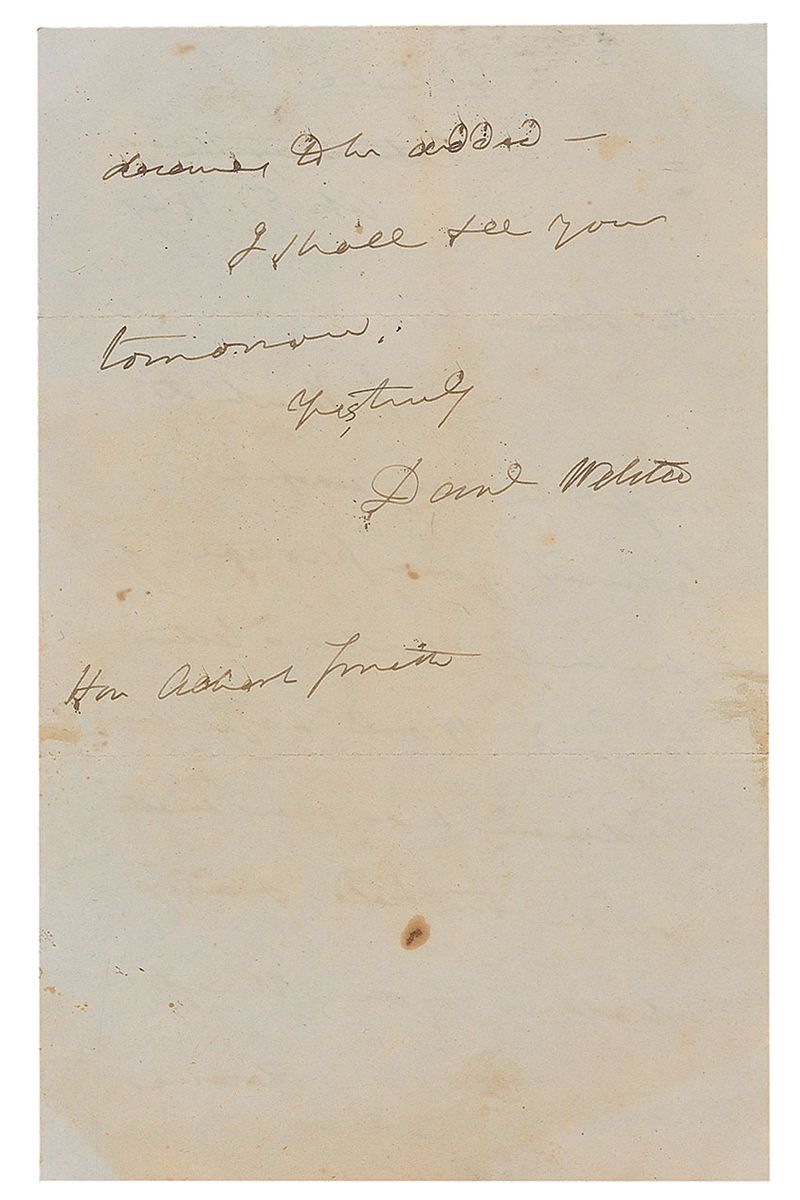 to be added —
I shall see you
tomorrow.
Yrs, truly
Danl Webster
Hon Albert Smith